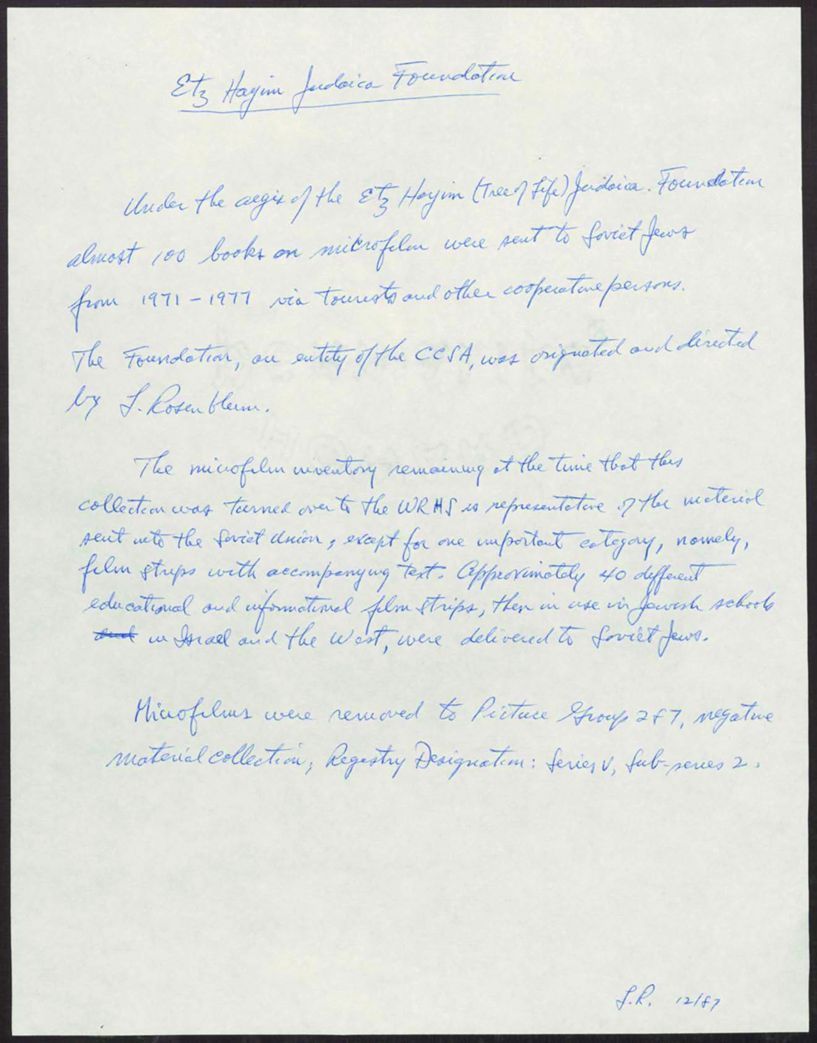 Etz Hayim Judaica Foundation
Under the aegis of the Etz Hayim (Tree of Life) Judaica Foundation
almost 100 books on microfilm were sent to Soviet Jews
from 1971-1977 via tourists and other cooperative persons.
The Foundation, an entity of the CCSA, was originated and directed
by L. Rosenblum.
The microfilm inventory remaining at the time that this
collection was turned over to the WRHS is representative of the material
sent into the Soviet Union, except for one important category, namely,
film strips with accompanying text. Approximately 40 different
educational and informational film strips, then in use in Jewish schools
and in Israel and the West, were delivered to Soviet Jews.
Microfilms were removed to Picture Group 287, negative
material collection; Registry Designation: Series V, Sub-series 2.
L.R. 12/87